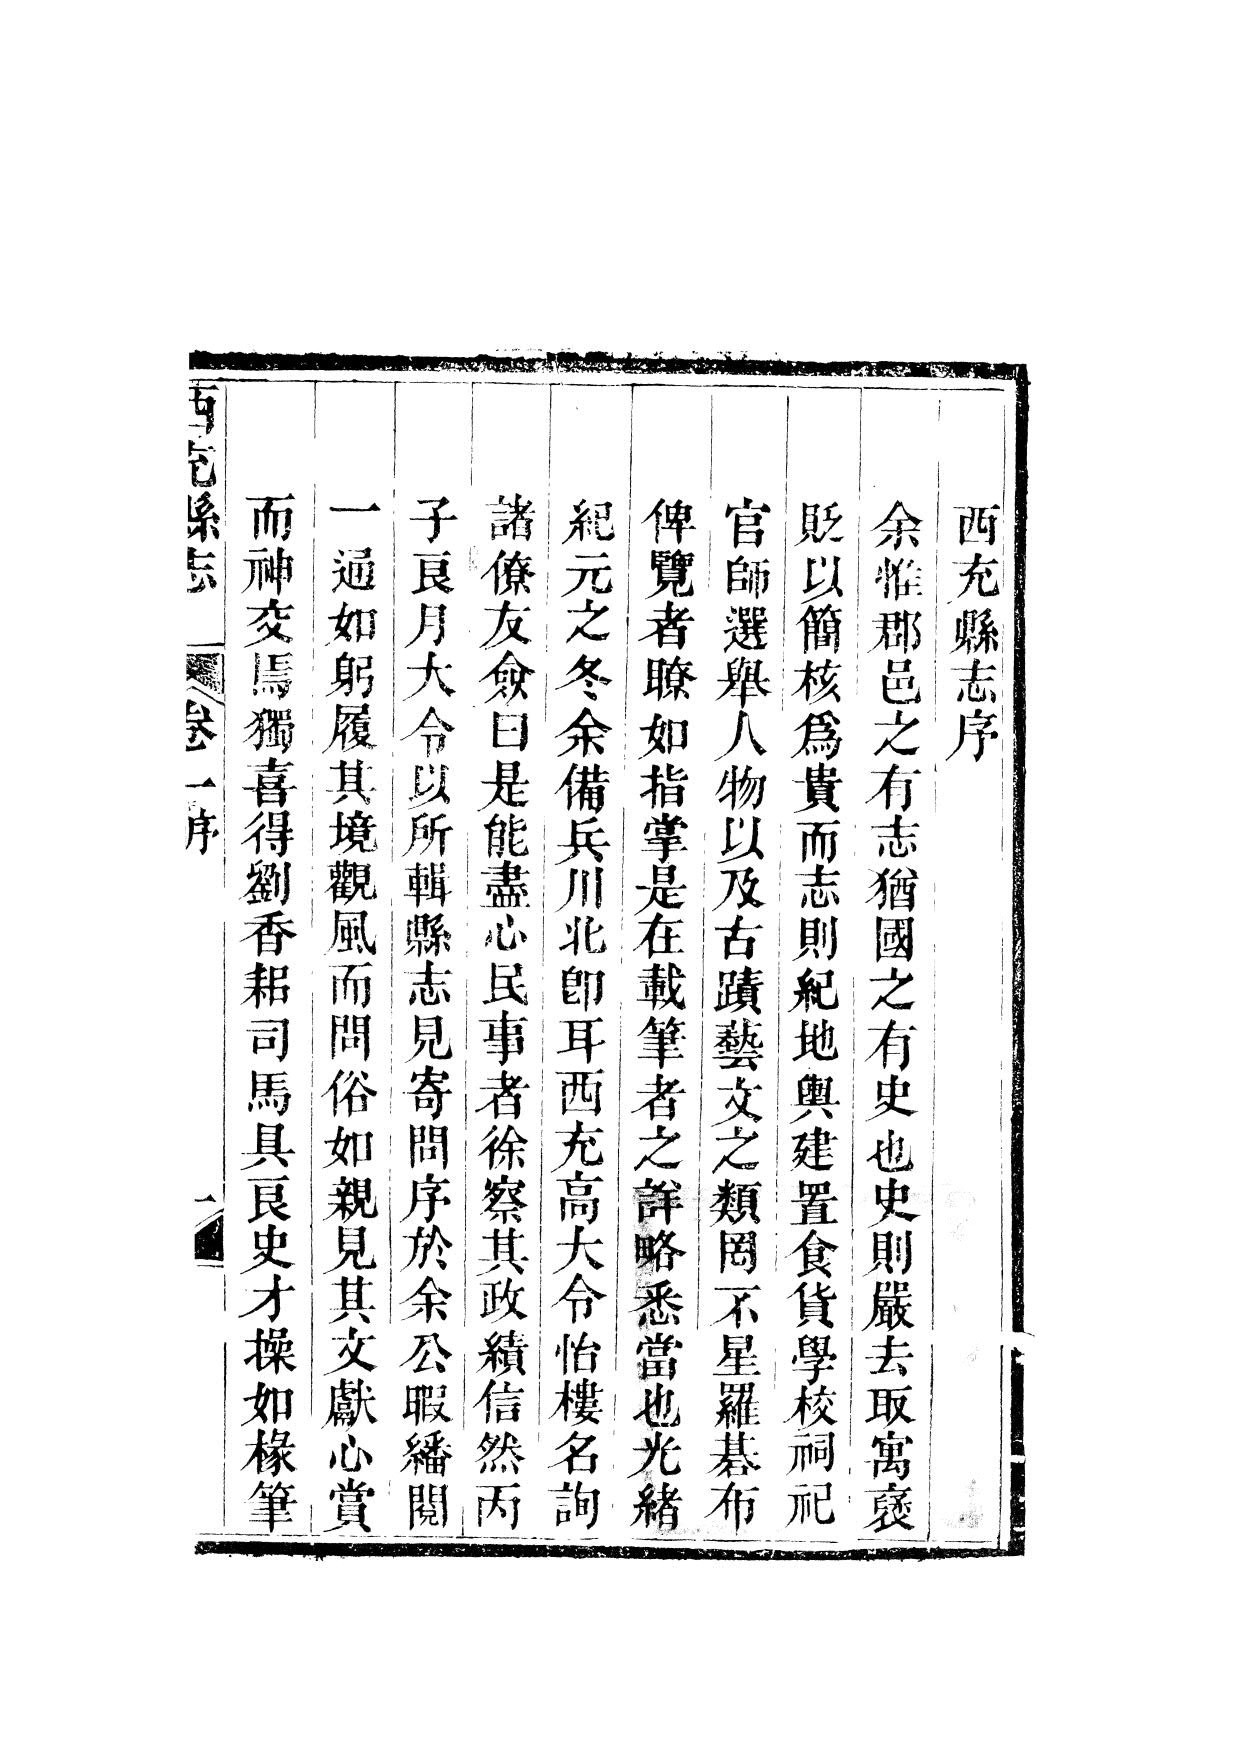 西充縣志序
余惟郡邑之有志猶國之有史也史則嚴去取寓褒
貶以簡核爲貴而志則紀地輿建置食貨學校祠祀
官師選舉人物以及古蹟藝文之類罔不星羅碁布
俾覽者瞭如指掌是在載筆者之詳略悉當也光緒
紀元之冬余備兵川北卽耳西充高大令怡樓名詢
諸僚友僉曰是能盡心民事者徐察其政績信然丙
子良月大令以所輯縣志見寄問序於余公暇繙閱
一通如躬履其境觀風而問俗如親見其文獻心賞
而神交焉獨喜得劉香耜司馬具良史才操如椽筆
西充縣志 卷一序 一